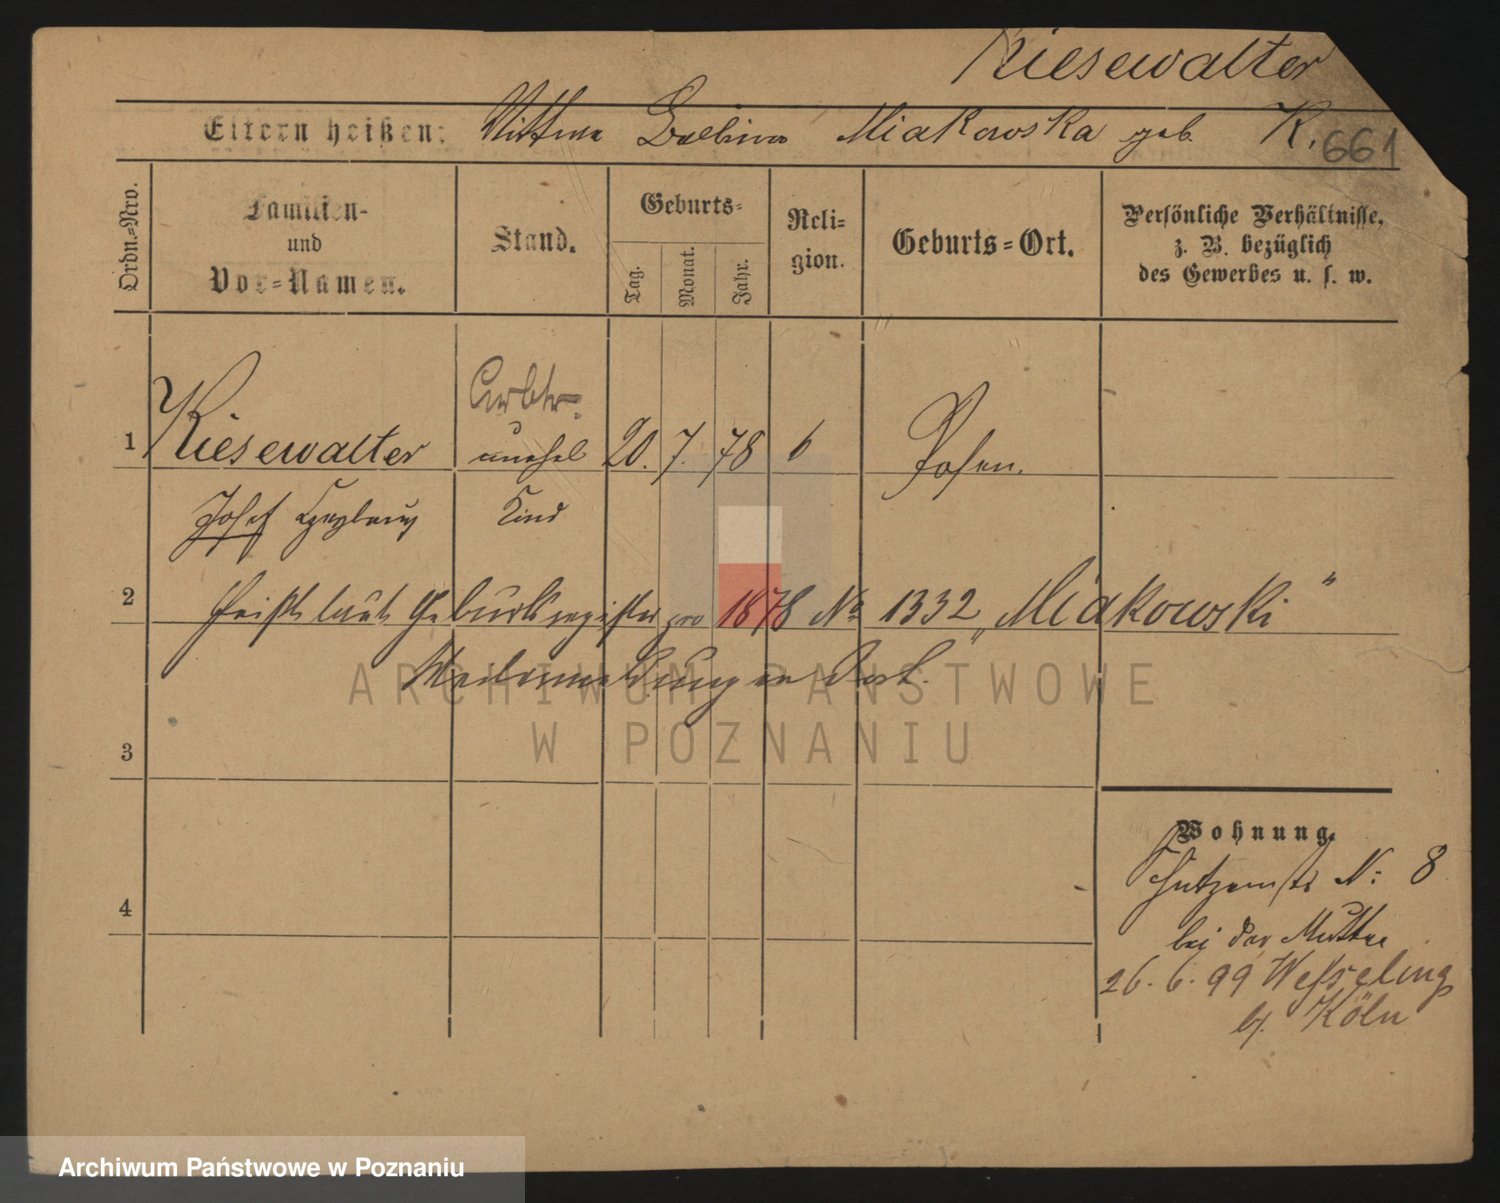 Kiesewalter
Eltern heißen: Wittwe Miakowska geb. K. 661
Ordn.-Nro.
Familien-
und
Vor-Namen.
Stand.
Geburts-
Tag.
Monat.
Jahr.
Reli-
gion.
Geburts-Ort.
Persönliche Verhältnisse,
z. B. bezüglich
des Gewerbes u. s. w.
1
Kiesewalter
unehel
20. 7. 78
Posen.
Josef
Kind
2
heißt laut Geburtsregister pro 1878 No 1332 „Miakowski"
ARCHIWUM PAŃSTWOWE
W POZNANIU
3
4
Wohnung.
Schützenstr No: 8
bei der Mutter
26. 6. 99 Wesseling
b. Köln
Archiwum Państwowe w Poznaniu